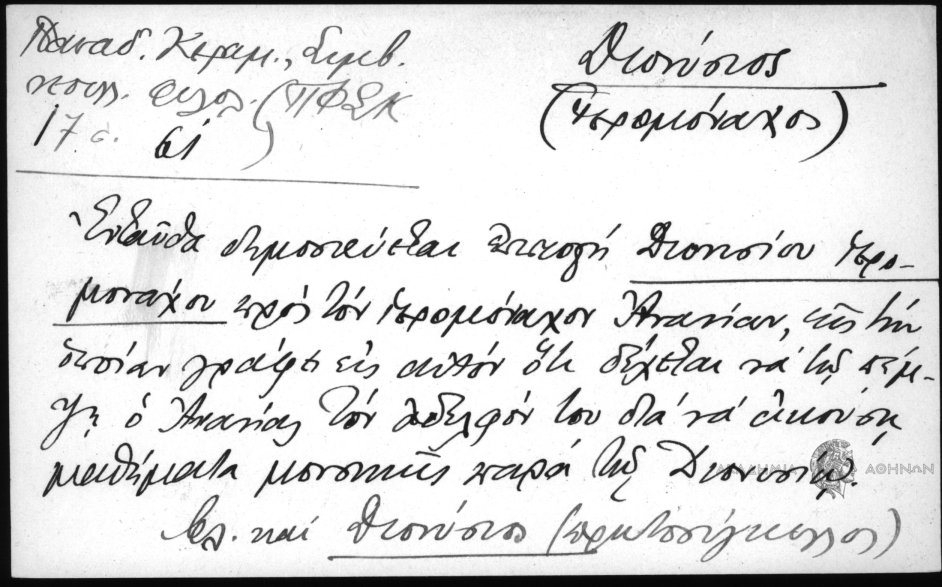 Παπαδ. Κεραμ., Συμβ.
νεοελλ. φιλολ. (ΠΦΣΚ
17 61 )
Διονύσιος
(ἱερομόναχος)
Ἐνταῦθα δημοσιεύεται ἐπιστολή Διονυσίου ἱερο-
μονάχου πρός τόν ἱερομόναχον Ἀνανίαν, εἰς τήν
ὁποίαν γράφει εἰς αὐτόν ὅτι δέχεται νά τῷ πέμ-
ψῃ ὁ Ἀνανίας τόν ἀδελφόν του διά νά ἀκούσῃ
μαθήματα μουσικῆς παρά τῷ Διονυσίῳ.
ΑΚΑΔΗΜΙΑ ΑΘΗΝΩΝ
Βλ. καί Διονύσιος (πρωτοσύγκελλος)